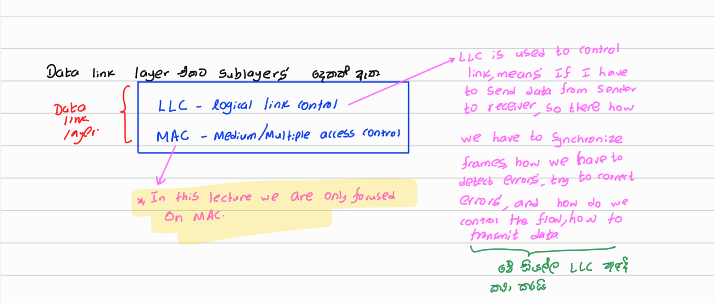 Data link layer එකට sublayers දෙකක් ඇත
Data
link
layer
LLC - logical link control
MAC - Medium/Multiple access control
* In this lecture we are only focused
On MAC.
LLC is used to control
link, means If I have
to send data from sender
to receiver, so there how
we have to synchronize
frames, how we have to
detect errors, try to correct
errors, and how do we
control the flow, how to
transmit data
මේ සියල්ල LLC
කතා කරයි